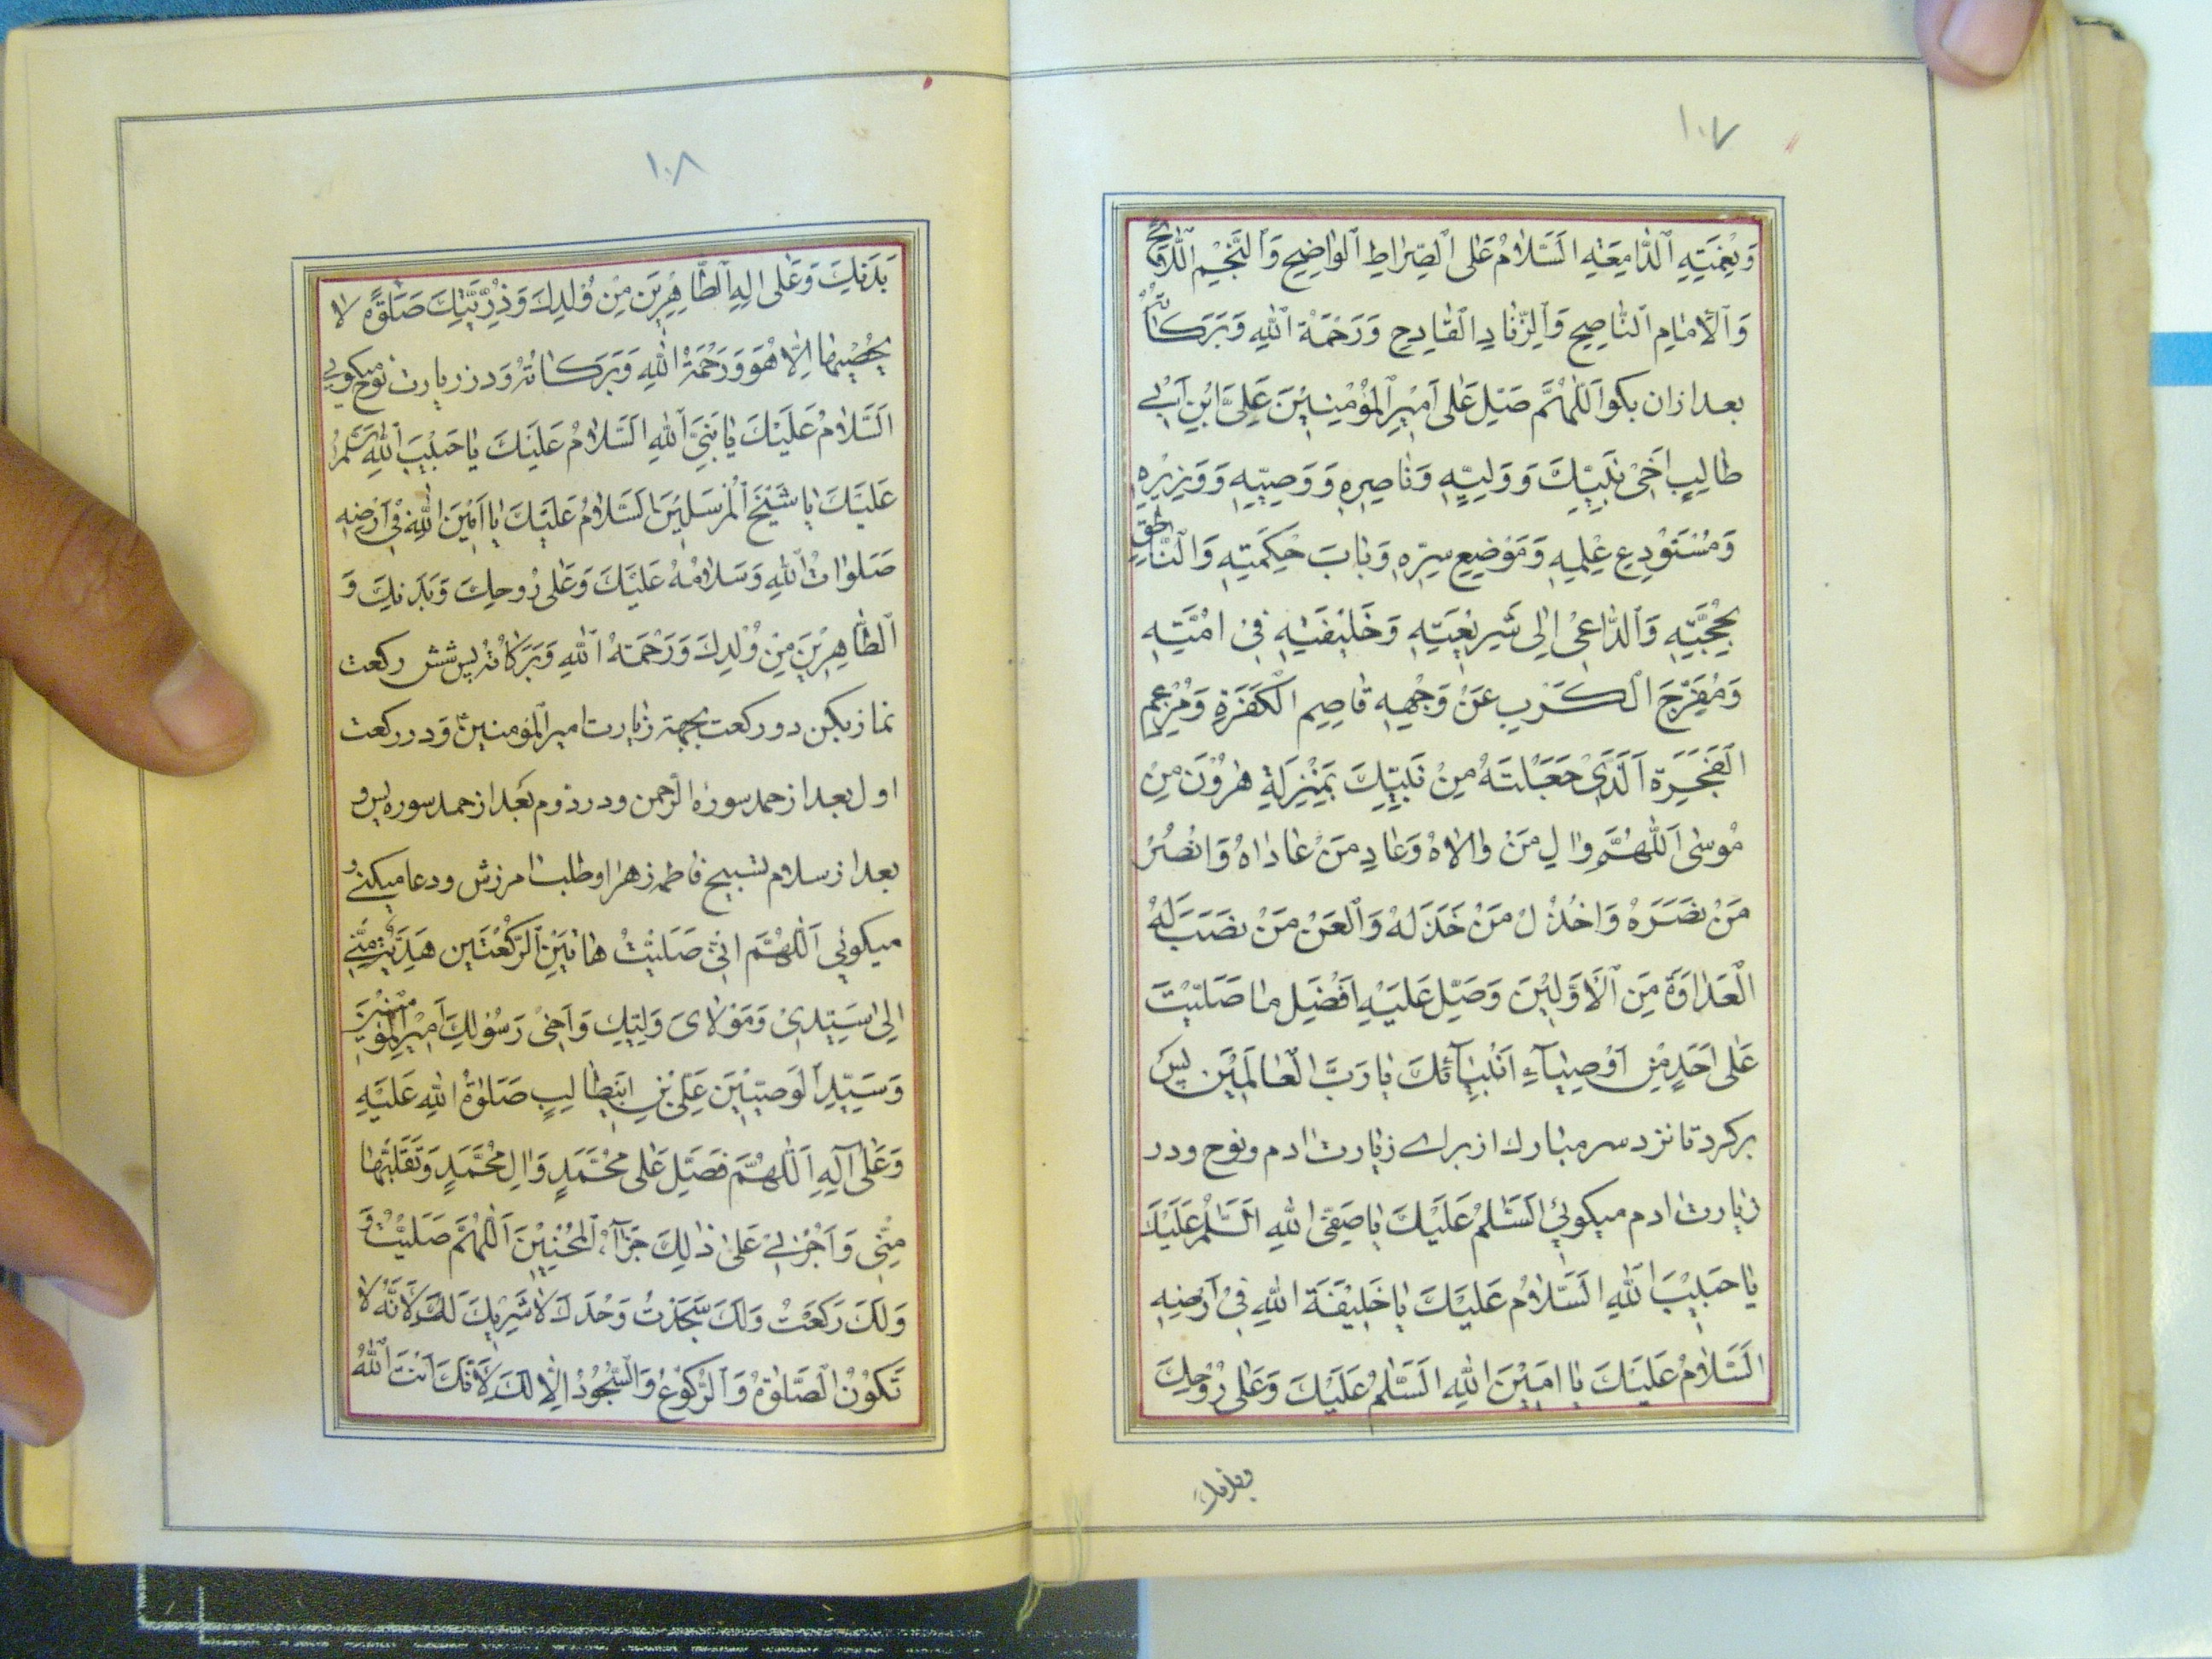 ١٠٧
وَنِعْمَتِهِ ٱلدَّامِغَهِ اَلسَّلٰامُ عَلَى ٱلصِّرٰاطِ ٱلْوٰاضِحِ وَٱلنَّجْمِ ٱللّٰائِحِ
وَٱلْأِمٰامِ ٱلنّٰاصِحِ وَٱلزِّنٰادِ ٱلْقٰادِحِ وَرَحْمَةُ ٱللهِ وَبَرَكٰاتُهُ
بعد ازان بكو اَللّٰهُمَّ صَلِّ عَلٰى اَمٖيرِ ٱلْمُؤْمِنٖينَ عَلِىَّ ابْنِ اَبٖي
طٰالِبٍ اَخٖىْ نَبِيِّكَ وَوَلِيِّهٖ وَنٰاصِرِهٖ وَوَصِيِّهٖ وَوَزٖيْرِهٖ
وَمُسْتَوْدِعِ عِلْمِهٖ وَمَوْضِعِ سِرِّهٖ وَبٰابَ حِكْمَتِهٖ وَالنّٰاطِقِ
بِحُجَّتِهٖ وَٱلدّٰاعٖىْ اِلٰى شَرٖيْعَتِهٖ وَخَلٖيْفَتِهٖ فٖىْ امَّتِهٖ
وَمُفَرِّجَ ٱلْكَرْبِ عَنْ وَجْهِهٖ قٰاصِمِ الْكَفَرَةِ وَمُرْغِمِ
ٱلْفَجَرَةِ اَلَّذٖىْ جَعَلْتَهُ مِنْ نَبِيِّكَ بِمَنْزِلَةِ هٰرُوْنَ مِنْ
مُوسٰى اَللّٰهُمَّ وٰالِ مَنْ وٰالاٰهُ وَعٰادِ مَنْ عٰادٰاهُ وَانْصُرْ
مَنْ نَصَرَهُ وَاخْذُلْ مَنْ خَذَلَهُ وَٱلْعَنْ مَنْ نَصَبَ لَهُ
الْعَدٰاوَةَ مِنَ ٱلْاَوَّلٖيْنَ وَصَلِّ عَلَيْهِ اَفْضَلِ مٰا صَلَّيْتَ
عَلٰى اَحَدٍ مِنْ اَوْصِيٰآءِ اَنْبِيٰآئِكَ يٰا رَبَّ الْعٰالَمٖيْنَ پس
بركرد تا نزد سر مبارك از براے زيارت ادم ونوح ودر
زيارت ادم ميكوئي اَلسَّلٰمُ عَلَيْكَ يٰا صَفِىَّ اللهِ اَلسَّلٰمُ عَلَيْكَ
يٰا حَبٖيْبَ اللهِ اَلسَّلٰامُ عَلَيْكَ يٰا خَلٖيْفَةَ اللهِ فٖىْ اَرْضِهٖ
اَلسَّلٰامُ عَلَيْكَ يٰا امٖيْنَ اللهِ اَلسَّلٰمُ عَلَيْكَ وَعَلٰى رُوْحِكَ
وبدنك
١٠٨
بَدَنِكَ وَعَلٰى اٰلِهِ ٱلطّٰاهِرٖيَن مِنْ وُلْدِكَ وَذُرِّيَّتِكَ صَلٰوةً لا
يُحْصٖيهٰا اِلّٰا هُوَ وَرَحْمَةُ اللهِ وَبَرَكٰاتُهُ ودر زيارت نوح ميكوئي
اَلسَّلٰامُ عَلَيْكَ يٰا نَبِىَّ ٱللهِ اَلسَّلٰامُ عَلَيْكَ يٰا حَبٖيْبَ ٱللهِ اَلسَّلٰمُ
عَلَيْكَ يٰا شَيْخَ ٱلْمُرْسَلٖيْنَ اَلسَّلٰامُ عَلَيْكَ يٰا اَمٖيْنَ اللهِ فٖىْ اَرْضِهٖ
صَلَوٰاتُ ٱللهِ وَسَلٰامُهُ عَلَيْكَ وَعَلٰى رُوحِكَ وَبَدَنِكَ وَ
ٱلطّٰاهِرٖيْنَ مِنْ وُلْدِكَ وَرَحْمَتهُ ٱللهِ وَبَرَكٰاتُهُ پس شش ركعت
نماز بكن دو ركعت بجهة زيارت امير المؤمنينؑ ودر ركعت
اول بعد از حمد سوره الرحمن ودر دوم بعد از حمد سوره يس و
بعد از سلام تسبيح فاطمه زهرا وطلب امرزش ودعا ميكنے و
ميكوئي اَللّٰهُمَّ اِنّٖى صَلَّيْتُ هٰاتَيْنِ ٱلرَّكْعَتَيْنِ هَدِيَّةً مِنّٖي
اِلٰى سَيِّدٖىْ وَمَوْلٰاىَ وَلِيِّكَ وَاَخٖىْ رَسُوْلِكَ اَمٖيْرِ ٱلْمُؤْمِنٖيْنَ
وَسَيِّدِ ٱلْوَصِيّٖيْنَ عَلِىّ بْنِ ابٖيطٰالِبٍ صَلٰوةُ اللهِ عَلَيْهِ
وَعَلٰى آلِهِ اَللّٰهُمَّ فَصَلِّ عَلٰى مُحَمَّدٍ وَاٰلِ مُحَمَّدٍ وَتَقَبَّلْهٰا
مِنّٖي وَاَجْزِنٖىْ عَلٰى ذٰلِكَ جَزٰآءَ ٱلْمُحْسِنٖيْنَ اَللّٰهُمَّ صَلَّيْتُ وَ
وَلَكَ رَكَعْتُ وَلَكَ سَجَدْتُ وَحْدَكَ لٰا شَرٖيْكَ لَكَ لِاَنَّهُ لٰا
تَكُوْنُ الصَّلٰوةُ وَٱلرُّكُوْعُ وَالسُّجُوْدُ اِلّٰا لَكَ لِاَنَّكَ اَنْتَ ٱللهُ